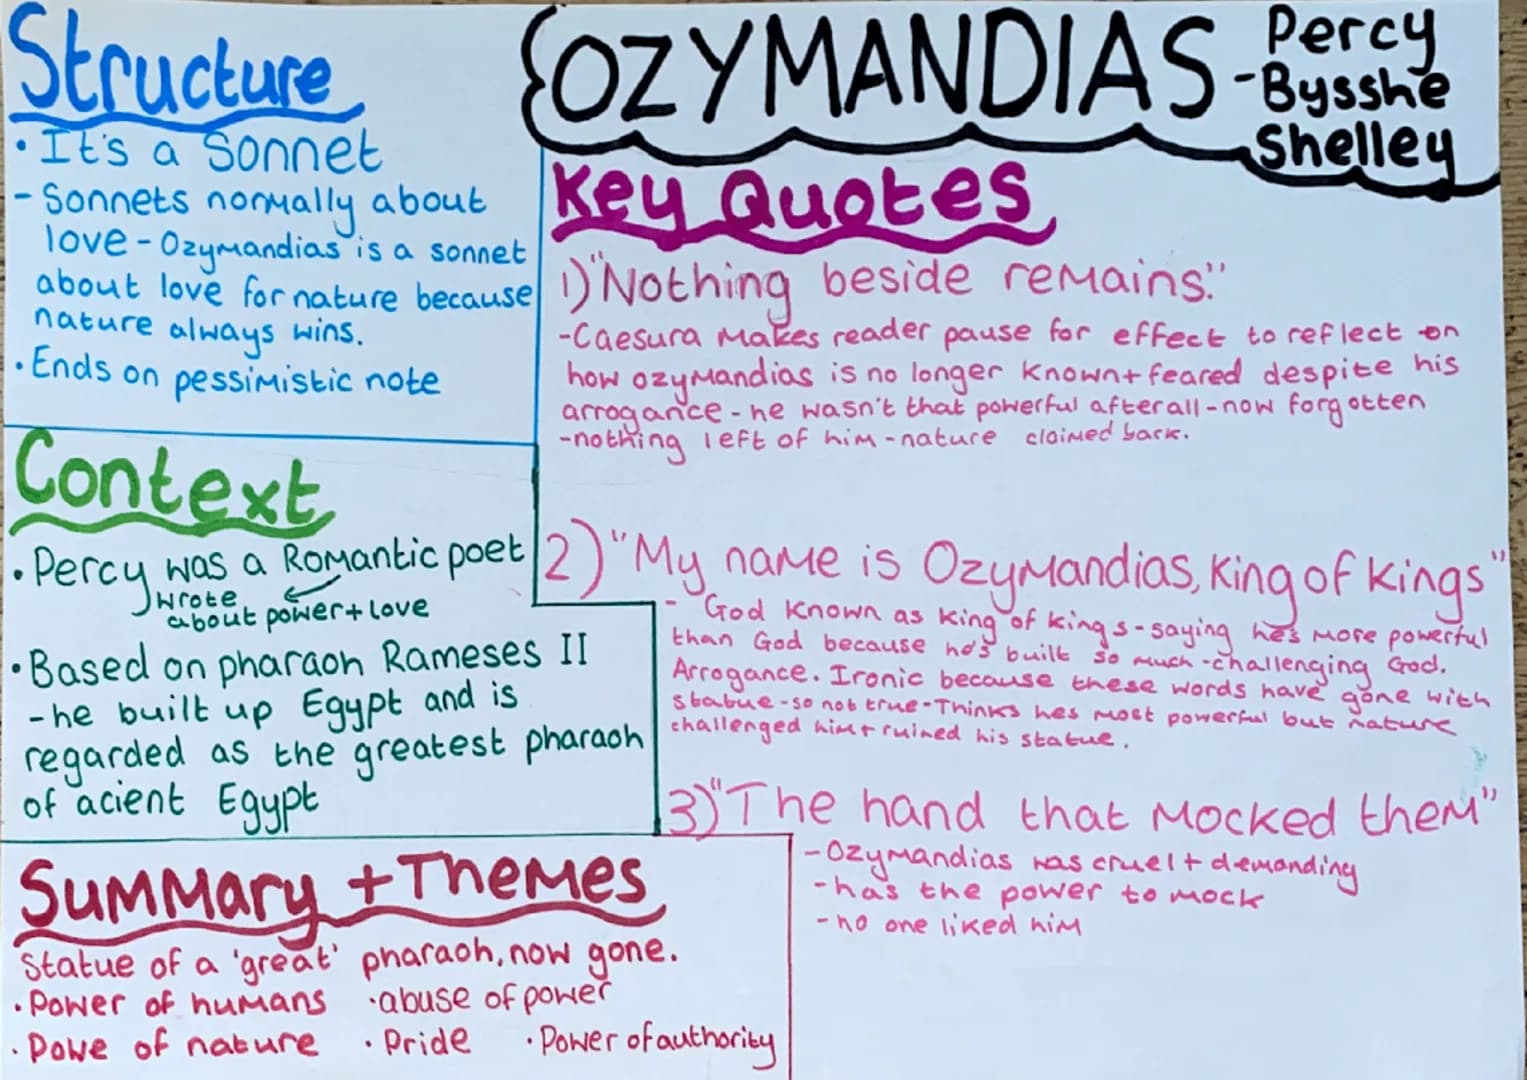 Structure
• It's a Sonnet
- Sonnets normally about
love - Ozymandias is a sonnet
about love for nature because
nature always wins.
• Ends on pessimistic note
{OZYMANDIAS - Percy
Bysshe
Shelley
Key Quotes
1) "Nothing beside remains."
- Caesura makes reader pause for effect to reflect on
how ozymandias is no longer known + feared despite his
arrogance - he wasn't that powerful afterall - now forgotten
- nothing left of him - nature claimed back.
2) "My name is Ozymandias, King of Kings"
- God known as king of kings - saying he's more powerful
than God because he's built so much - challenging God.
Arrogance. Ironic because these words have gone with
statue - so not true - Thinks hes most powerful but nature
challenged him + ruined his statue.
3) "The hand that mocked them"
- Ozymandias was cruel + demanding
- has the power to mock
- no one liked him
Context
• Percy was a Romantic poet
wrote
about power + love
• Based on pharaoh Rameses II
- he built up Egypt and is
regarded as the greatest pharaoh
of acient Egypt
Summary + Themes
Statue of a 'great' pharaoh, now gone.
• Power of humans • abuse of power
• Powe of nature • Pride • Power of authority